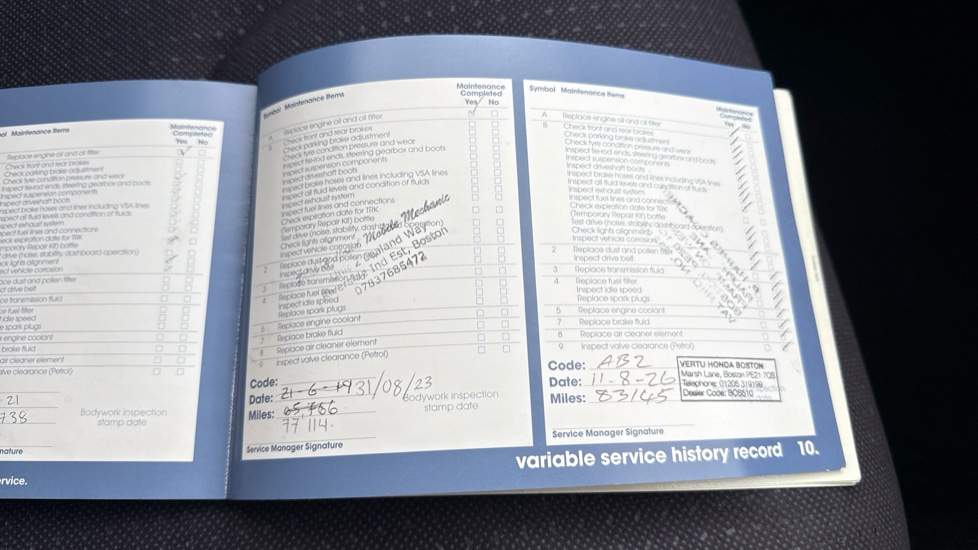 Symbol Maintenance Items
Maintenance
Completed
Yes No
Replace engine oil and oil filter
Check front and rear brakes
Check parking brake adjustment
Check tyre condition pressure and wear
Inspect tie-rod ends, steering gearbox and boots
Inspect suspension components
Inspect driveshaft boots
Inspect brake hoses and lines including VSA lines
Inspect all fluid levels and condition of fluids
Inspect exhaust system
Inspect fuel lines and connections
Check expiration date for TRK
(Temporary Repair Kit) bottle
Test drive (noise, stability, dashboard operation)
Check lights alignment
Inspect vehicle corrosion
Replace dust and pollen filter
Inspect drive belt
Replace transmission fluid
Replace fuel filter
Inspect idle speed
Replace spark plugs
Replace engine coolant
Replace brake fluid
Replace air cleaner element
Inspect valve clearance (Petrol)
21
738
Bodywork inspection
stamp date
Symbol Maintenance Items
Maintenance
Completed
Yes No
A Replace engine oil and oil filter
Check front and rear brakes
Check parking brake adjustment
Check tyre condition pressure and wear
Inspect tie-rod ends, steering gearbox and boots
Inspect suspension components
Inspect driveshaft boots
Inspect brake hoses and lines including VSA lines
Inspect all fluid levels and condition of fluids
Inspect exhaust system
Inspect fuel lines and connections
Check expiration date for TRK
(Temporary Repair Kit) bottle
Test drive (noise, stability, dashboard operation)
Check lights alignment
Inspect vehicle corrosion
2 Replace dust and pollen filter
Inspect drive belt
3 Replace transmission fluid
4 Replace fuel filter
Inspect idle speed
Replace spark plugs
Replace engine coolant
7 Replace brake fluid
8 Replace air cleaner element
9 Inspect valve clearance (Petrol)
Mobile Mechanic
Zealand Way
Riverside Ind Est, Boston
07837685472
Code:
Date: 21-6-19 31/08/23
Miles:
77 114.
Bodywork inspection
stamp date
Service Manager Signature
Symbol Maintenance Items
Maintenance
Completed
Yes No
A Replace engine oil and oil filter
B Check front and rear brakes
Check parking brake adjustment
Check tyre condition pressure and wear
Inspect tie-rod ends, steering gearbox and boots
Inspect suspension components
Inspect driveshaft boots
Inspect brake hoses and lines including VSA lines
Inspect all fluid levels and condition of fluids
Inspect exhaust system
Inspect fuel lines and connections
Check expiration date for TRK
(Temporary Repair Kit) bottle
Test drive (noise, stability, dashboard operation)
Check lights alignment
Inspect vehicle corrosion
2 Replace dust and pollen filter
Inspect drive belt
3 Replace transmission fluid
4 Replace fuel filter
Inspect idle speed
Replace spark plugs
5 Replace engine coolant
7 Replace brake fluid
8 Replace air cleaner element
9 Inspect valve clearance (Petrol)
Code: AB2
Date: 11-8-26
Miles: 83145
VERTU HONDA BOSTON
Marsh Lane, Boston PE21 7QS
Telephone: 01205 319199
Dealer Code: BOS510
Service Manager Signature
variable service history record 10.